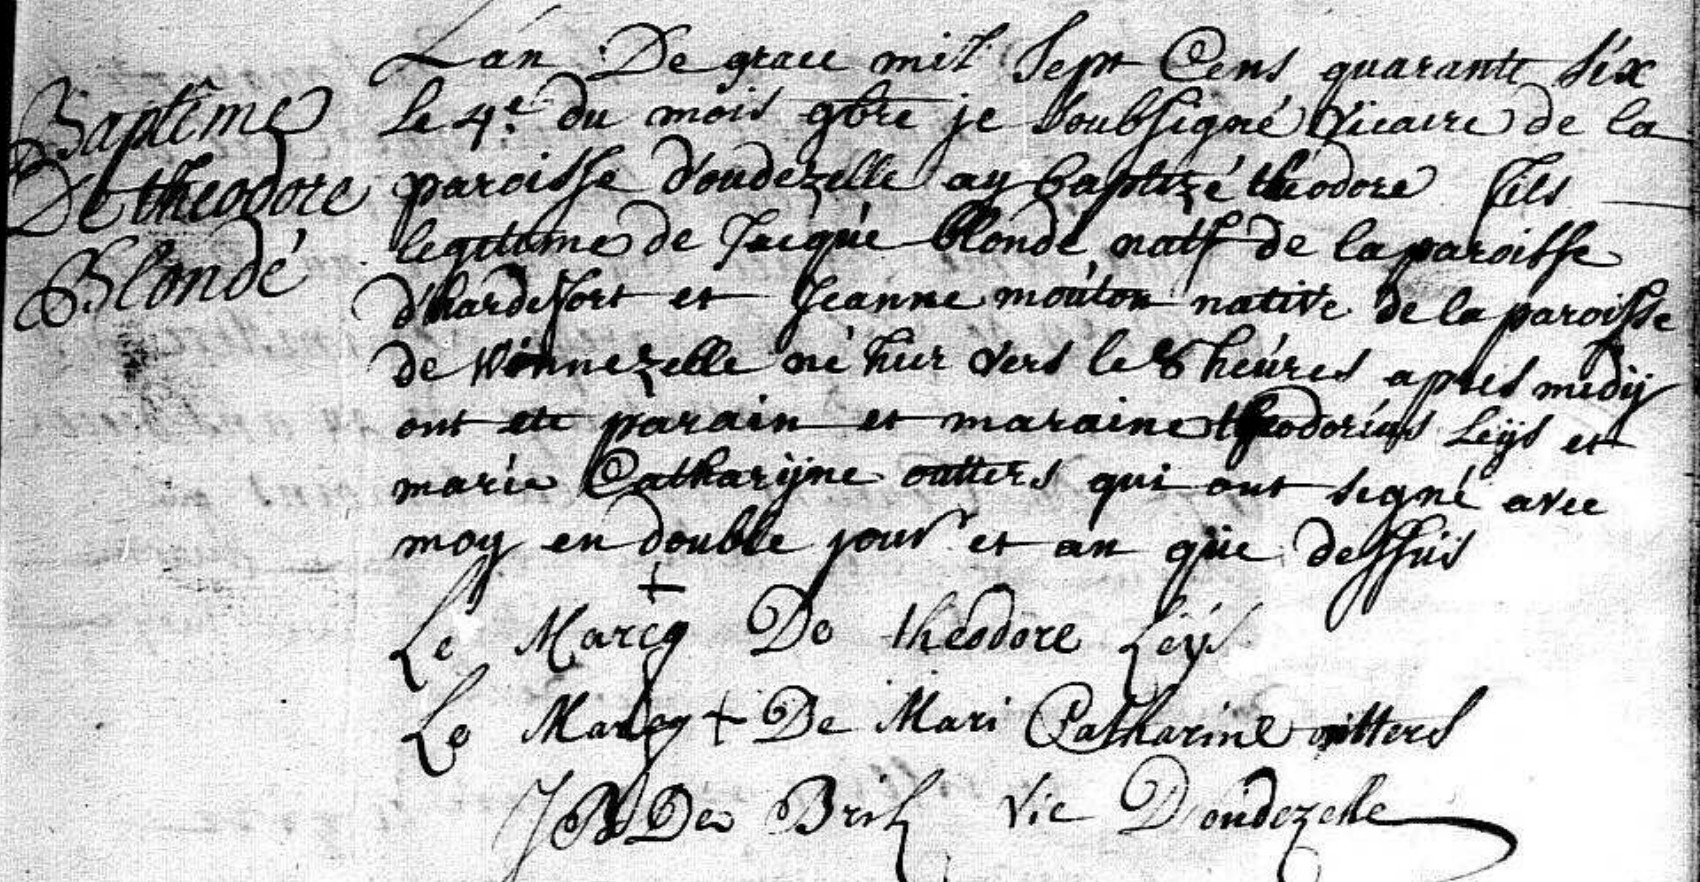 Baptême
De theodore
Blondé
Lan De grace mil Sept Cens quarante six
le 4e. du mois 9bre je soubsigné vicaire de la
paroisse d'oudezelle ay baptizé theodore fils
legitime de Jacque blonde natif de la paroisse
d'hardifort et Jeanne mouton native de la paroisse
de Winnezelle né hier vers le 8 heures apres midij
ont ete parain et maraine theodorius Leijs et
marie Catharijne outters qui ont segné avec
moy en double jour et an que dessus
Le Marcq De theodore Leijs
Le Marcq + De Mari Catharine outters
JB De Bril vic Doudezelle